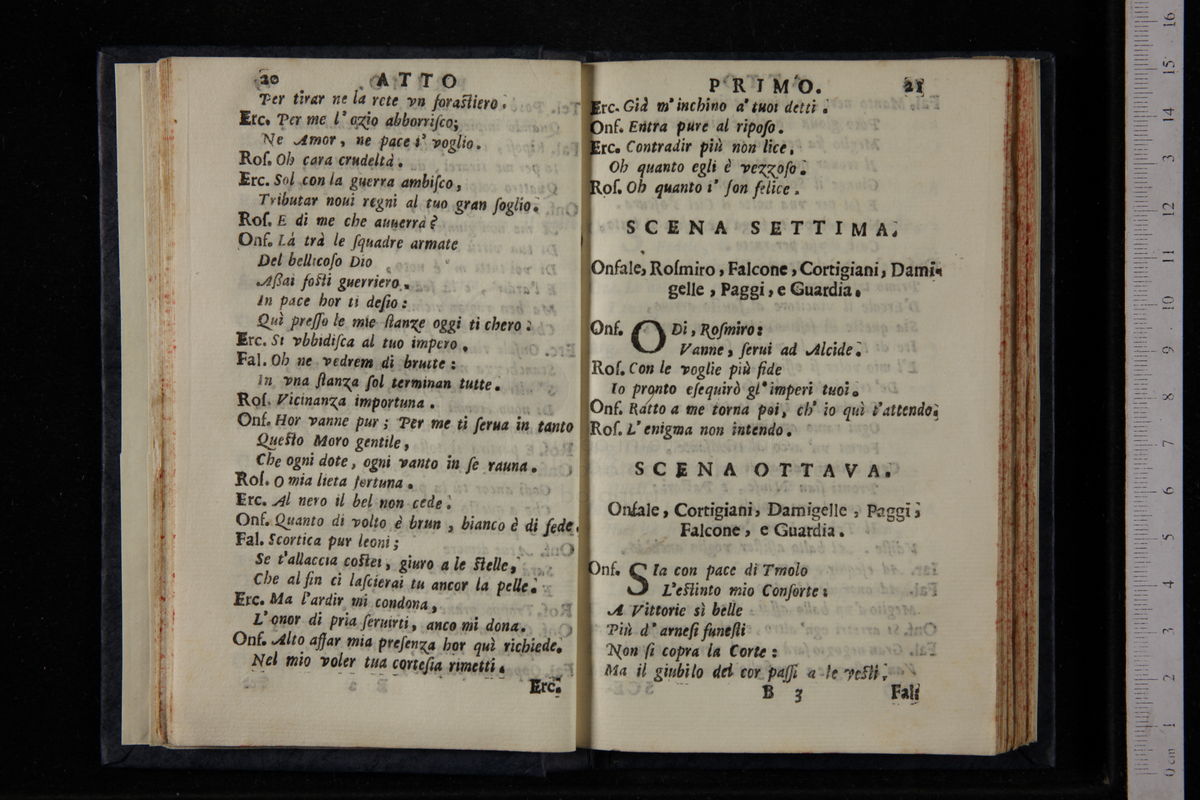 20 ATTO
Per tirar ne la rete vn forastiero.
Erc. Per me l' ozio abborriſco;
Ne Amor, ne pace i' voglio.
Roſ. Oh cara crudeltà.
Erc. Sol con la guerra ambiſco,
Tributar noui regni al tuo gran ſoglio.
Roſ. E di me che auuerrà?
Onf. Là trà le ſquadre armate
Del bellicoſo Dio
Aßai foſti guerriero.
In pace hor ti deſio:
Quì preſſo le mie ſtanze oggi ti chero.
Erc. Si vbbidiſca al tuo impero.
Fal. Oh ne vedrem di brutte:
In vna ſtanza ſol terminan tutte.
Roſ. Vicinanza importuna.
Onf. Hor vanne pur; Per me ti ſerua in tanto
Queſto Moro gentile,
Che ogni dote, ogni vanto in ſe rauna.
Roſ. O mia lieta fortuna.
Erc. Al nero il bel non cede.
Onf. Quanto di volto è brun, bianco è di fede.
Fal. Scortica pur leoni;
Se t'allaccia coſtei, giuro a le ſtelle,
Che al fin ci laſcierai tu ancor la pelle.
Erc. Ma l'ardir mi condona,
L'onor di pria ſeruirti, anco mi dona.
Onf. Alto affar mia preſenza hor quì richiede.
Nel mio voler tua corteſia rimetti.
Erc.
PRIMO. 21
Erc. Già m'inchino a' tuoi detti.
Onf. Entra pure al ripoſo.
Erc. Contradir più non lice.
Oh quanto egli è vezzoſo.
Roſ. Oh quanto i' ſon felice.
SCENA SETTIMA.
Onfale, Roſmiro, Falcone, Cortigiani, Dami-
gelle, Paggi, e Guardia.
Onf. ODi, Roſmiro:
Vanne, ſerui ad Alcide.
Roſ. Con le voglie più fide
Io pronto eſequirò gl'imperi tuoi.
Onf. Ratto a me torna poi, ch' io quì t'attendo.
Roſ. L'enigma non intendo.
SCENA OTTAVA.
Onfale, Cortigiani, Damigelle, Paggi,
Falcone, e Guardia.
Onf. SIa con pace di Tmolo
L'eſtinto mio Conſorte:
A Vittorie sì belle
Più d' arneſi funeſti
Non ſi copra la Corte:
Ma il giubilo del cor paſſi a le veſti.
B 3 Fal.